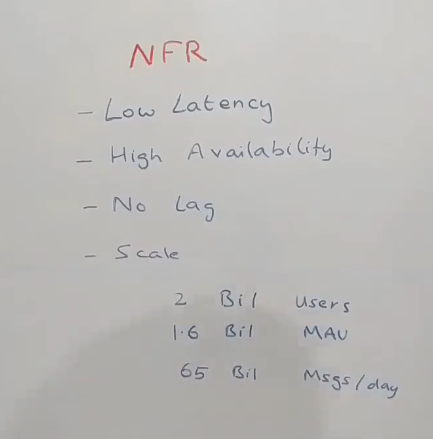 NFR
- Low Latency
- High Availability
- No Lag
- Scale
2 Bil Users
1.6 Bil MAU
65 Bil Msgs/day